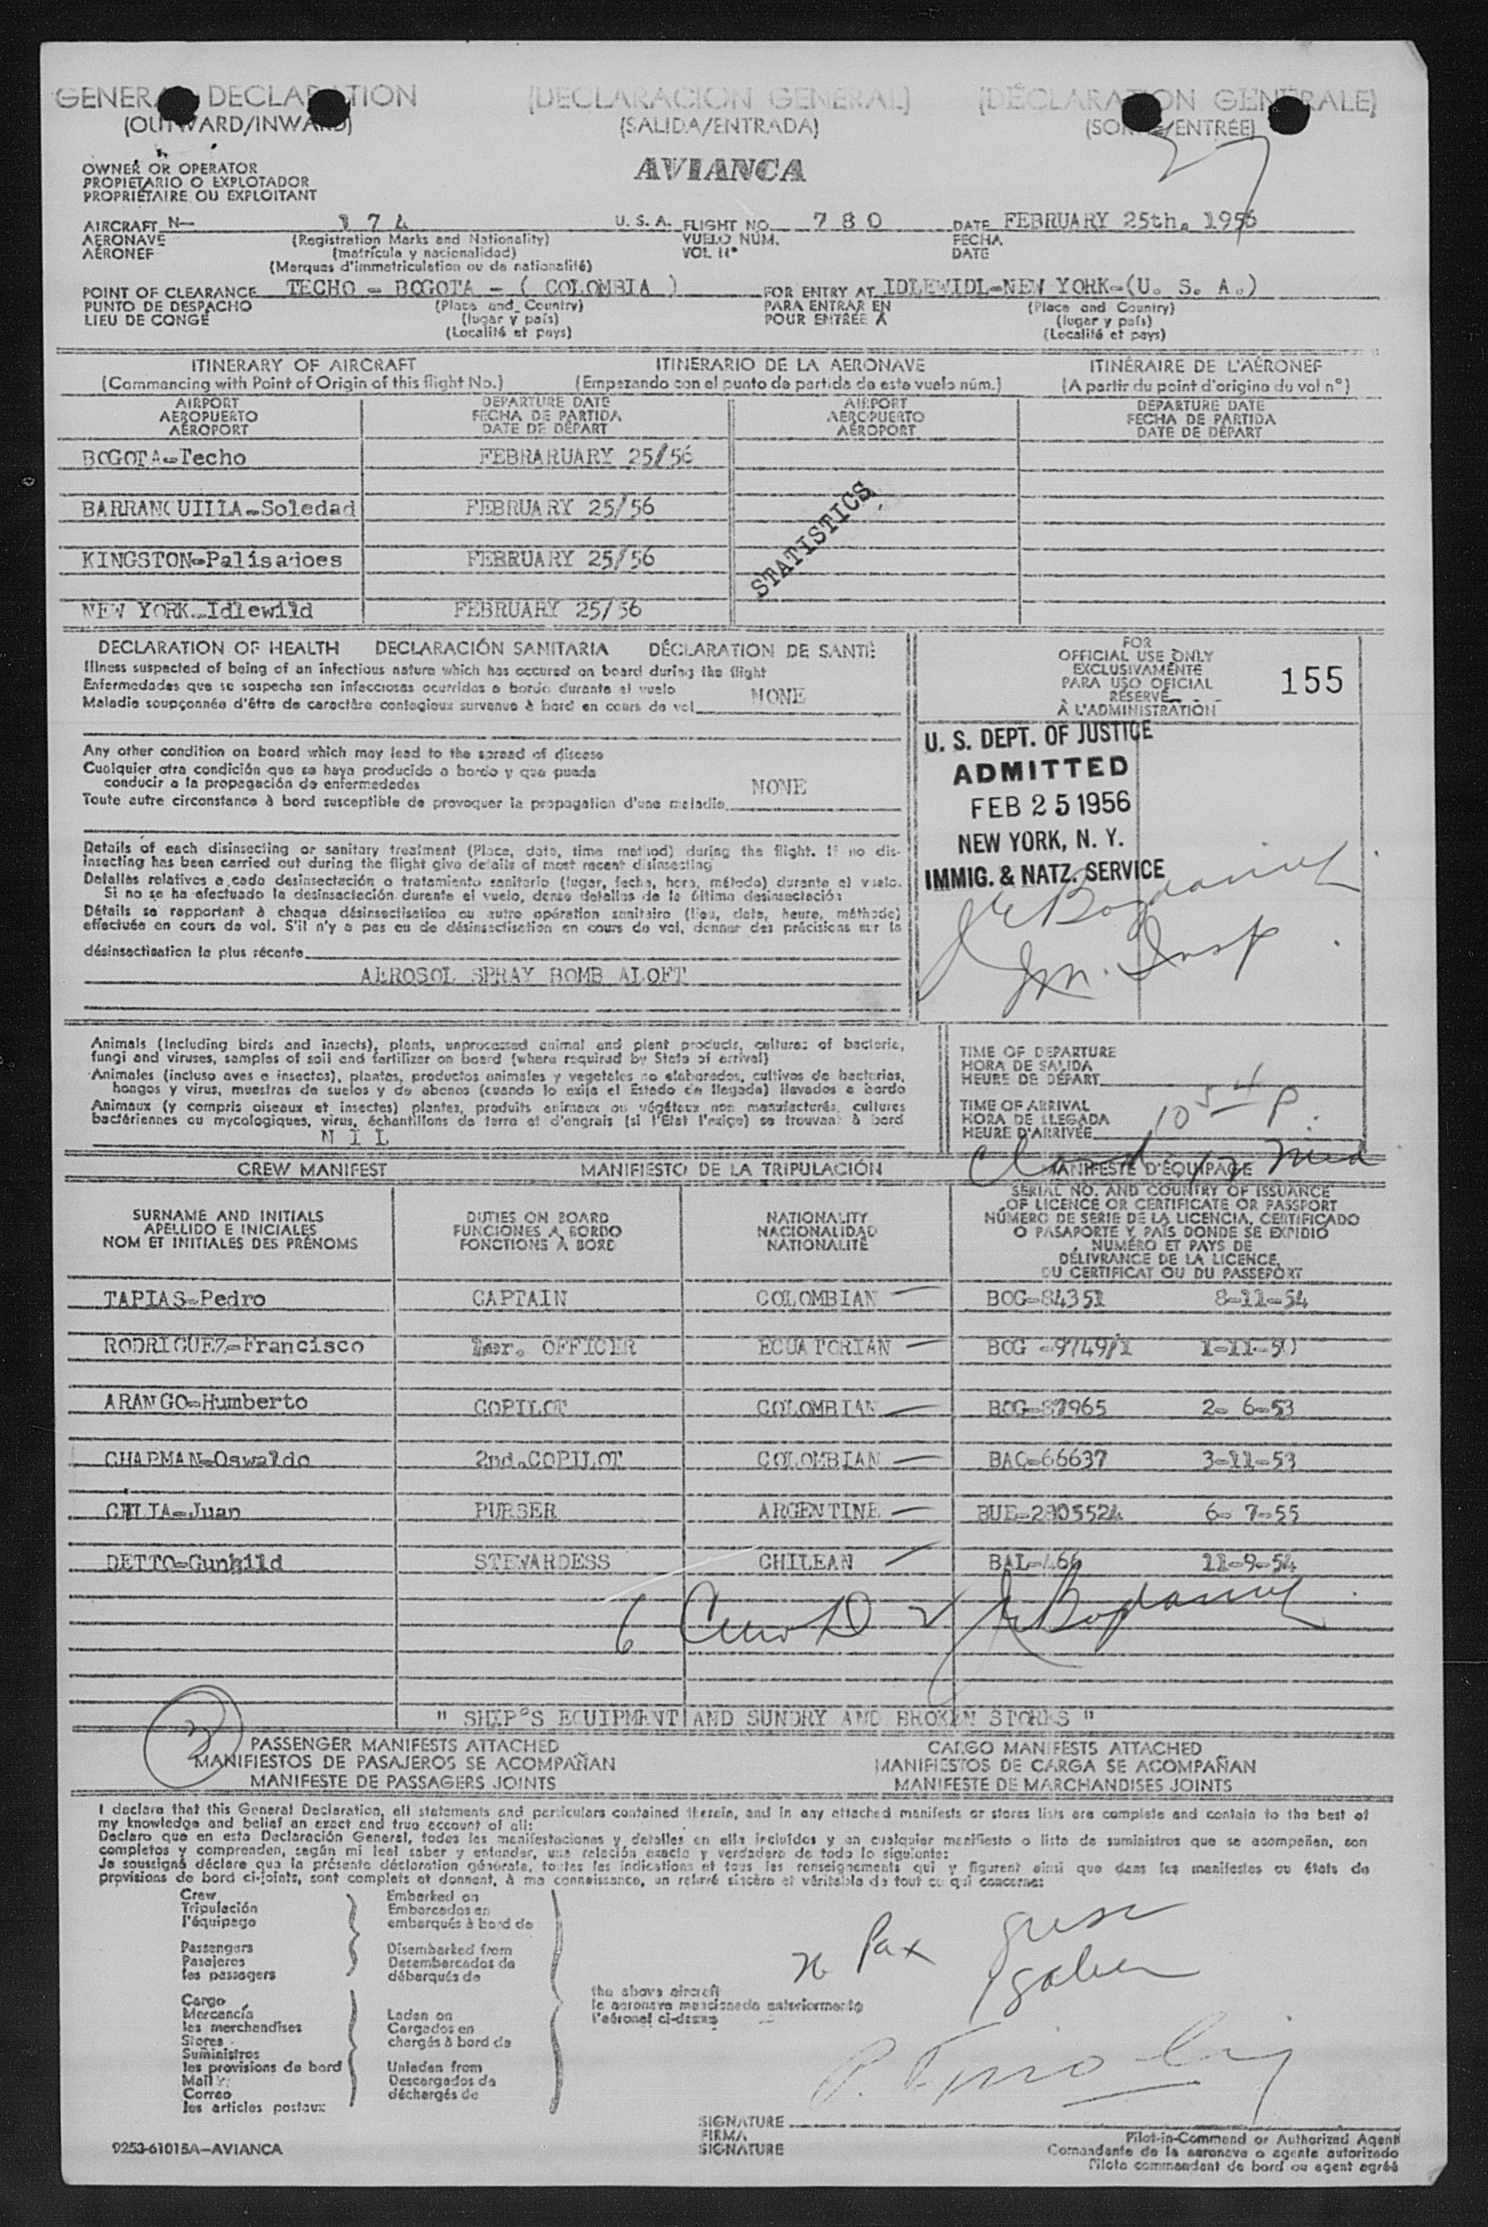 GENERAL DECLARATION (DECLARACION GENERAL) (DÉCLARATION GÉNÉRALE)
(OUTWARD/INWARD) (SALIDA/ENTRADA) (SORTIE/ENTRÉE)
27
OWNER OR OPERATOR
PROPIETARIO O EXPLOTADOR
PROPRIÉTAIRE OU EXPLOITANT
AVIANCA
AIRCRAFT N- 174 U. S. A. FLIGHT NO. 780 DATE FEBRUARY 25th. 1956
AERONAVE (Registration Marks and Nationality) VUELO NÚM. FECHA
AÉRONEF (matrícula y nacionalidad) VOL Nº DATE
(Marques d'immatriculation ou de nationalité)
POINT OF CLEARANCE TECHO - BOGOTA - ( COLOMBIA ) FOR ENTRY AT IDLEWIDL-NEW YORK-(U. S. A.)
PUNTO DE DESPACHO (Place and Country) PARA ENTRAR EN (Place and Country)
LIEU DE CONGÉ (lugar y país) POUR ENTRÉE A (lugar y país)
(Localité et pays) (Localité et pays)
ITINERARY OF AIRCRAFT ITINERARIO DE LA AERONAVE ITINÉRAIRE DE L'AÉRONEF
(Commencing with Point of Origin of this flight No.) (Empezando con el punto de partida de este vuelo núm.) (A partir du point d'origine du vol nº)
AIRPORT DEPARTURE DATE AIRPORT DEPARTURE DATE
AEROPUERTO FECHA DE PARTIDA AEROPUERTO FECHA DE PARTIDA
AÉROPORT DATE DE DÉPART AÉROPORT DATE DE DÉPART
BOGOTA-Techo FEBRARUARY 25/56
BARRANQUILLA-Soledad FEBRUARY 25/56
KINGSTON-Palisadoes FEBRUARY 25/56
NEW YORK-Idlewild FEBRUARY 25/56
STATISTICS
DECLARATION OF HEALTH DECLARACIÓN SANITARIA DÉCLARATION DE SANTÉ
Illness suspected of being of an infectious nature which has occured on board during the flight
Enfermedades que se sospecha son infecciosas ocurridas a bordo durante el vuelo
Maladie soupçonnée d'être de caractère contagieux survenue à bord en cours de vol NONE
Any other condition on board which may lead to the spread of disease
Cualquier otra condición que se haya producido a bordo y que pueda
conducir a la propagación de enfermedades
Toute autre circonstance à bord susceptible de provoquer la propagation d'une maladie NONE
Details of each disinsecting or sanitary treatment (Place, date, time method) during the flight. If no dis-
insecting has been carried out during the flight give details of most recent disinsecting
Detalles relativos a cada desinsectación o tratamiento sanitario (lugar, fecha, hora, método) durante el vuelo.
Si no se ha efectuado la desinsectación durante el vuelo, dense detalles de la última desinsectación
Détails se rapportant à chaque désinsectisation ou autre opération sanitaire (lieu, date, heure, méthode)
effectuée en cours de vol. S'il n'y a pas eu de désinsectisation en cours de vol, donner des précisions sur la
désinsectisation la plus récente
AEROSOL SPRAY BOMB ALOFT
FOR
OFFICIAL USE ONLY
EXCLUSIVAMENTE
PARA USO OFICIAL
RÉSERVÉ
À L'ADMINISTRATION
155
U. S. DEPT. OF JUSTICE
ADMITTED
FEB 25 1956
NEW YORK, N. Y.
IMMIG. & NATZ. SERVICE
Im. Insp
Animals (Including birds and insects), plants, unprocessed animal and plant products, cultures of bacteria,
fungi and viruses, samples of soil and fertilizer on board (where required by State of arrival)
Animales (incluso aves e insectos), plantas, productos animales y vegetales no elaborados, cultivos de bacterias,
hongos y virus, muestras de suelos y de abonos (cuando lo exija el Estado de llegada) llevados a bordo
Animaux (y compris oiseaux et insectes) plantes, produits animaux ou végétaux non manufacturés, cultures
bactériennes ou mycologiques, virus, échantillons de terre et d'engrais (si l'Etat l'exige) se trouvant à bord
N I L
TIME OF DEPARTURE
HORA DE SALIDA
HEURE DE DÉPART
TIME OF ARRIVAL
HORA DE LLEGADA
HEURE D'ARRIVÉE
10 54 P.
CREW MANIFEST MANIFIESTO DE LA TRIPULACIÓN MANIFESTE D'ÉQUIPAGE
SURNAME AND INITIALS DUTIES ON BOARD NATIONALITY SERIAL NO. AND COUNTRY OF ISSUANCE
APELLIDO E INICIALES FUNCIONES A BORDO NACIONALIDAD OF LICENCE OR CERTIFICATE OR PASSPORT
NOM ET INITIALES DES PRÉNOMS FONCTIONS À BORD NATIONALITÉ NÚMERO DE SERIE DE LA LICENCIA, CERTIFICADO
O PASAPORTE Y PAÍS DONDE SE EXPIDIÓ
NUMÉRO ET PAYS DE
DÉLIVRANCE DE LA LICENCE,
DU CERTIFICAT OU DU PASSEPORT
TAPIAS-Pedro CAPTAIN COLOMBIAN BOG-84351 8-11-54
RODRIGUEZ-Francisco OFFICER ECUATORIAN BOG
ARANGO-Humberto COPILOT COLOMBIAN 2- 6-53
CHAPMAN-Oswaldo 2nd.COPILOT COLOMBIAN BAQ-66637 3-11-53
CELIA-Juan PURSER ARGENTINE BUE-2805524 6- 7-55
DETTO-Gunhild STEWARDESS CHILEAN BAL-466 11-9-54
6 Crew
" SHIP'S EQUIPMENT AND SUNDRY AND BROKEN STORES "
2
PASSENGER MANIFESTS ATTACHED CARGO MANIFESTS ATTACHED
MANIFIESTOS DE PASAJEROS SE ACOMPAÑAN MANIFIESTOS DE CARGA SE ACOMPAÑAN
MANIFESTE DE PASSAGERS JOINTS MANIFESTE DE MARCHANDISES JOINTS
I declare that this General Declaration, all statements and particulars contained therein, and in any attached manifests or stores lists are complete and contain to the best of
my knowledge and belief an exact and true account of all:
Declaro que en esta Declaración General, todas las manifestaciones y detalles en ella incluídos y en cualquier manifiesto o lista de suministros que se acompañen, son
completos y comprenden, según mi leal saber y entender, una relación exacta y verdadera de todo lo siguiente:
Je soussigné déclare que la présente déclaration générale, toutes les indications et tous les renseignements qui y figurent ainsi que dans les manifestes ou états de
provisions de bord ci-joints, sont complets et donnent, à ma connaissance, un relevé sincère et véritable de tout ce qui concerne:
Crew Embarked on
Tripulación Embarcados en
l'équipage embarqués à bord de
Passengers Disembarked from
Pasajeros Desembarcados de
les passagers débarqués de
26 Pax
the above aircraft
la aeronave mencionada anteriormente
l'aéronef ci-dessus
Cargo
Mercancía Laden on
les merchandises Cargados en
Stores chargés à bord de
Suministros
les provisions de bord Unladen from
Mail Descargados de
Correo déchargés de
les articles postaux
SIGNATURE
FIRMA Pilot-in-Command or Authorized Agent
SIGNATURE Comandante de la aeronave o agente autorizado
Pilote commandant de bord ou agent agréé
9253-61015A-AVIANCA